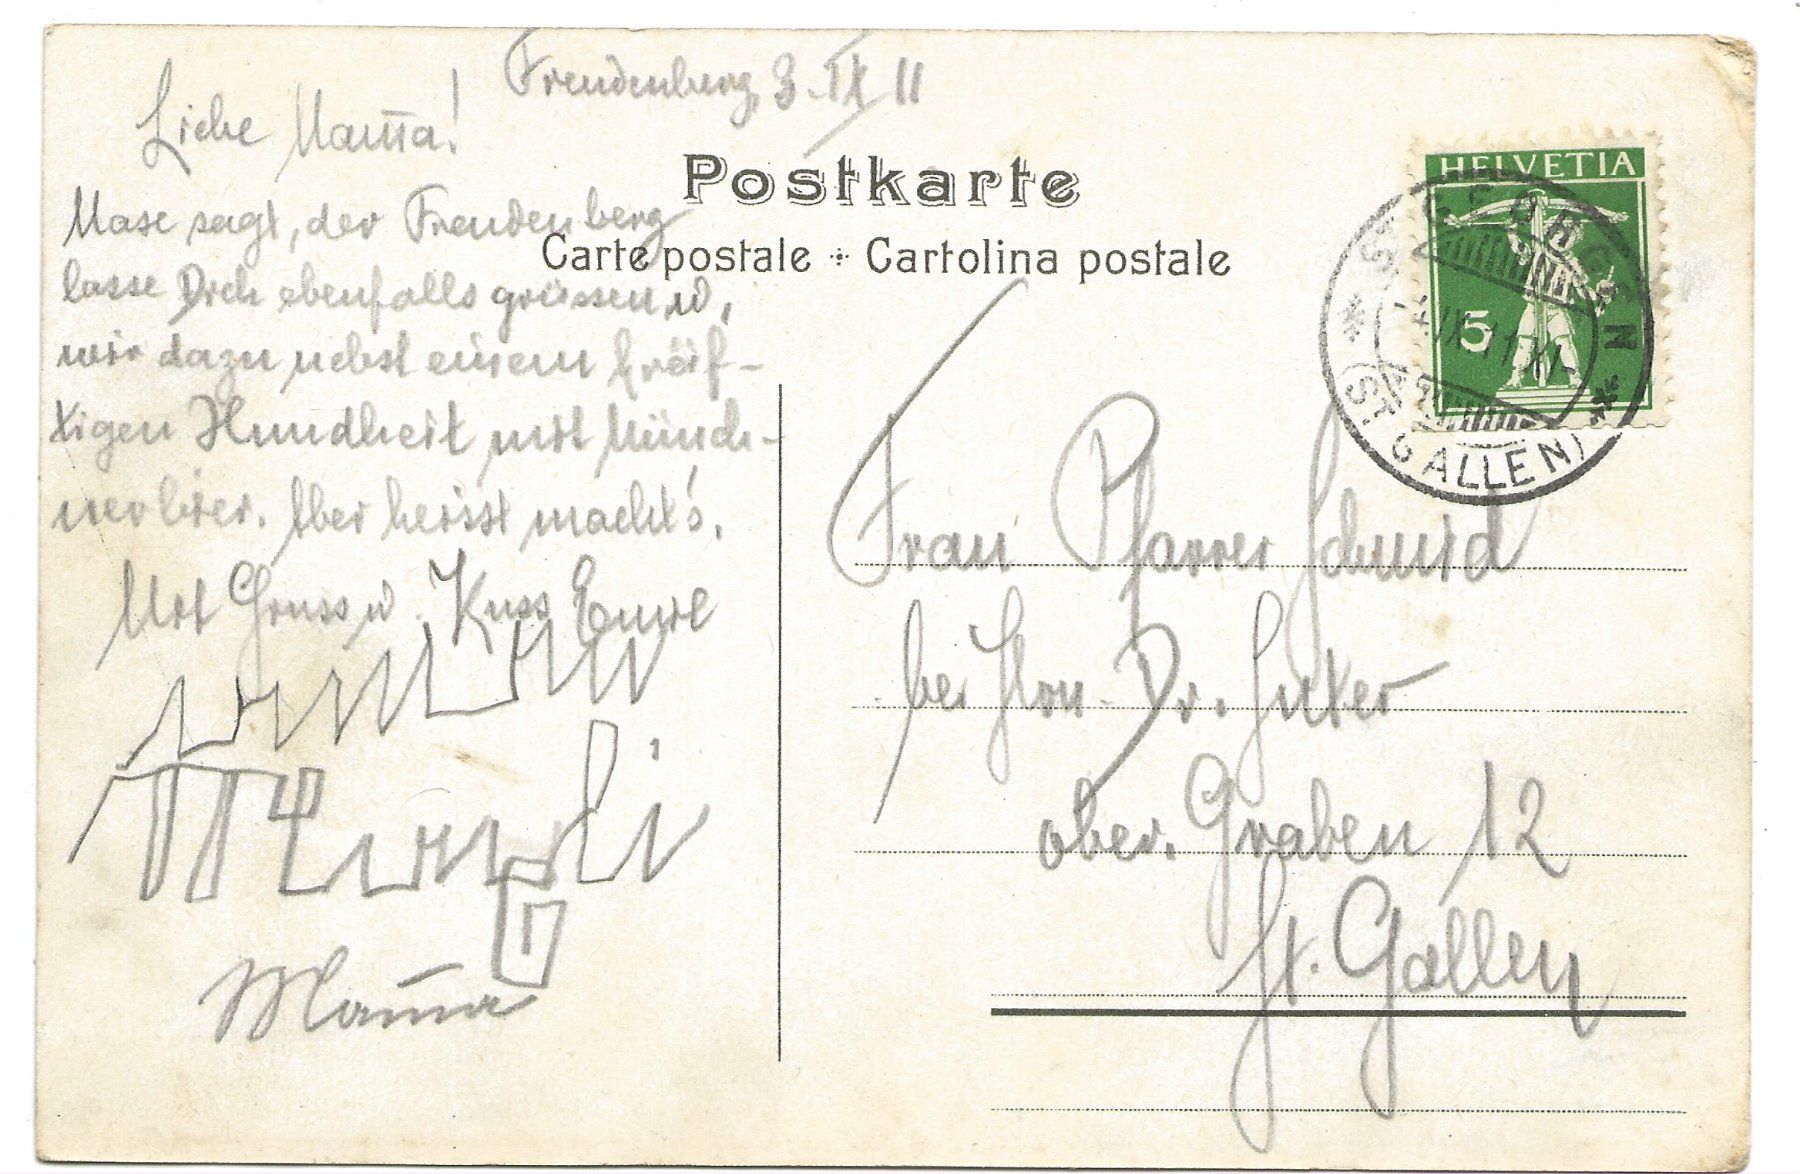 Freudenberg, 3. IX 11
Liebe Mam̄a!
Mase sagt, der Freudenberg
lasse Dich ebenfalls grüssen u,
wir dazu nebst einem kräf-
tigen Hundheit mit Münch-
nerbier. Aber heisst macht's.
Mit Gruss u. Kuss Emil
Mam̄a
Postkarte
Carte postale Cartolina postale
HELVETIA
5
ST. GEORGEN
(ST. GALLEN)
Frau Pfarrer Schmid
bei Hrn. Dr. Suter
ober. Graben 12
St. Gallen